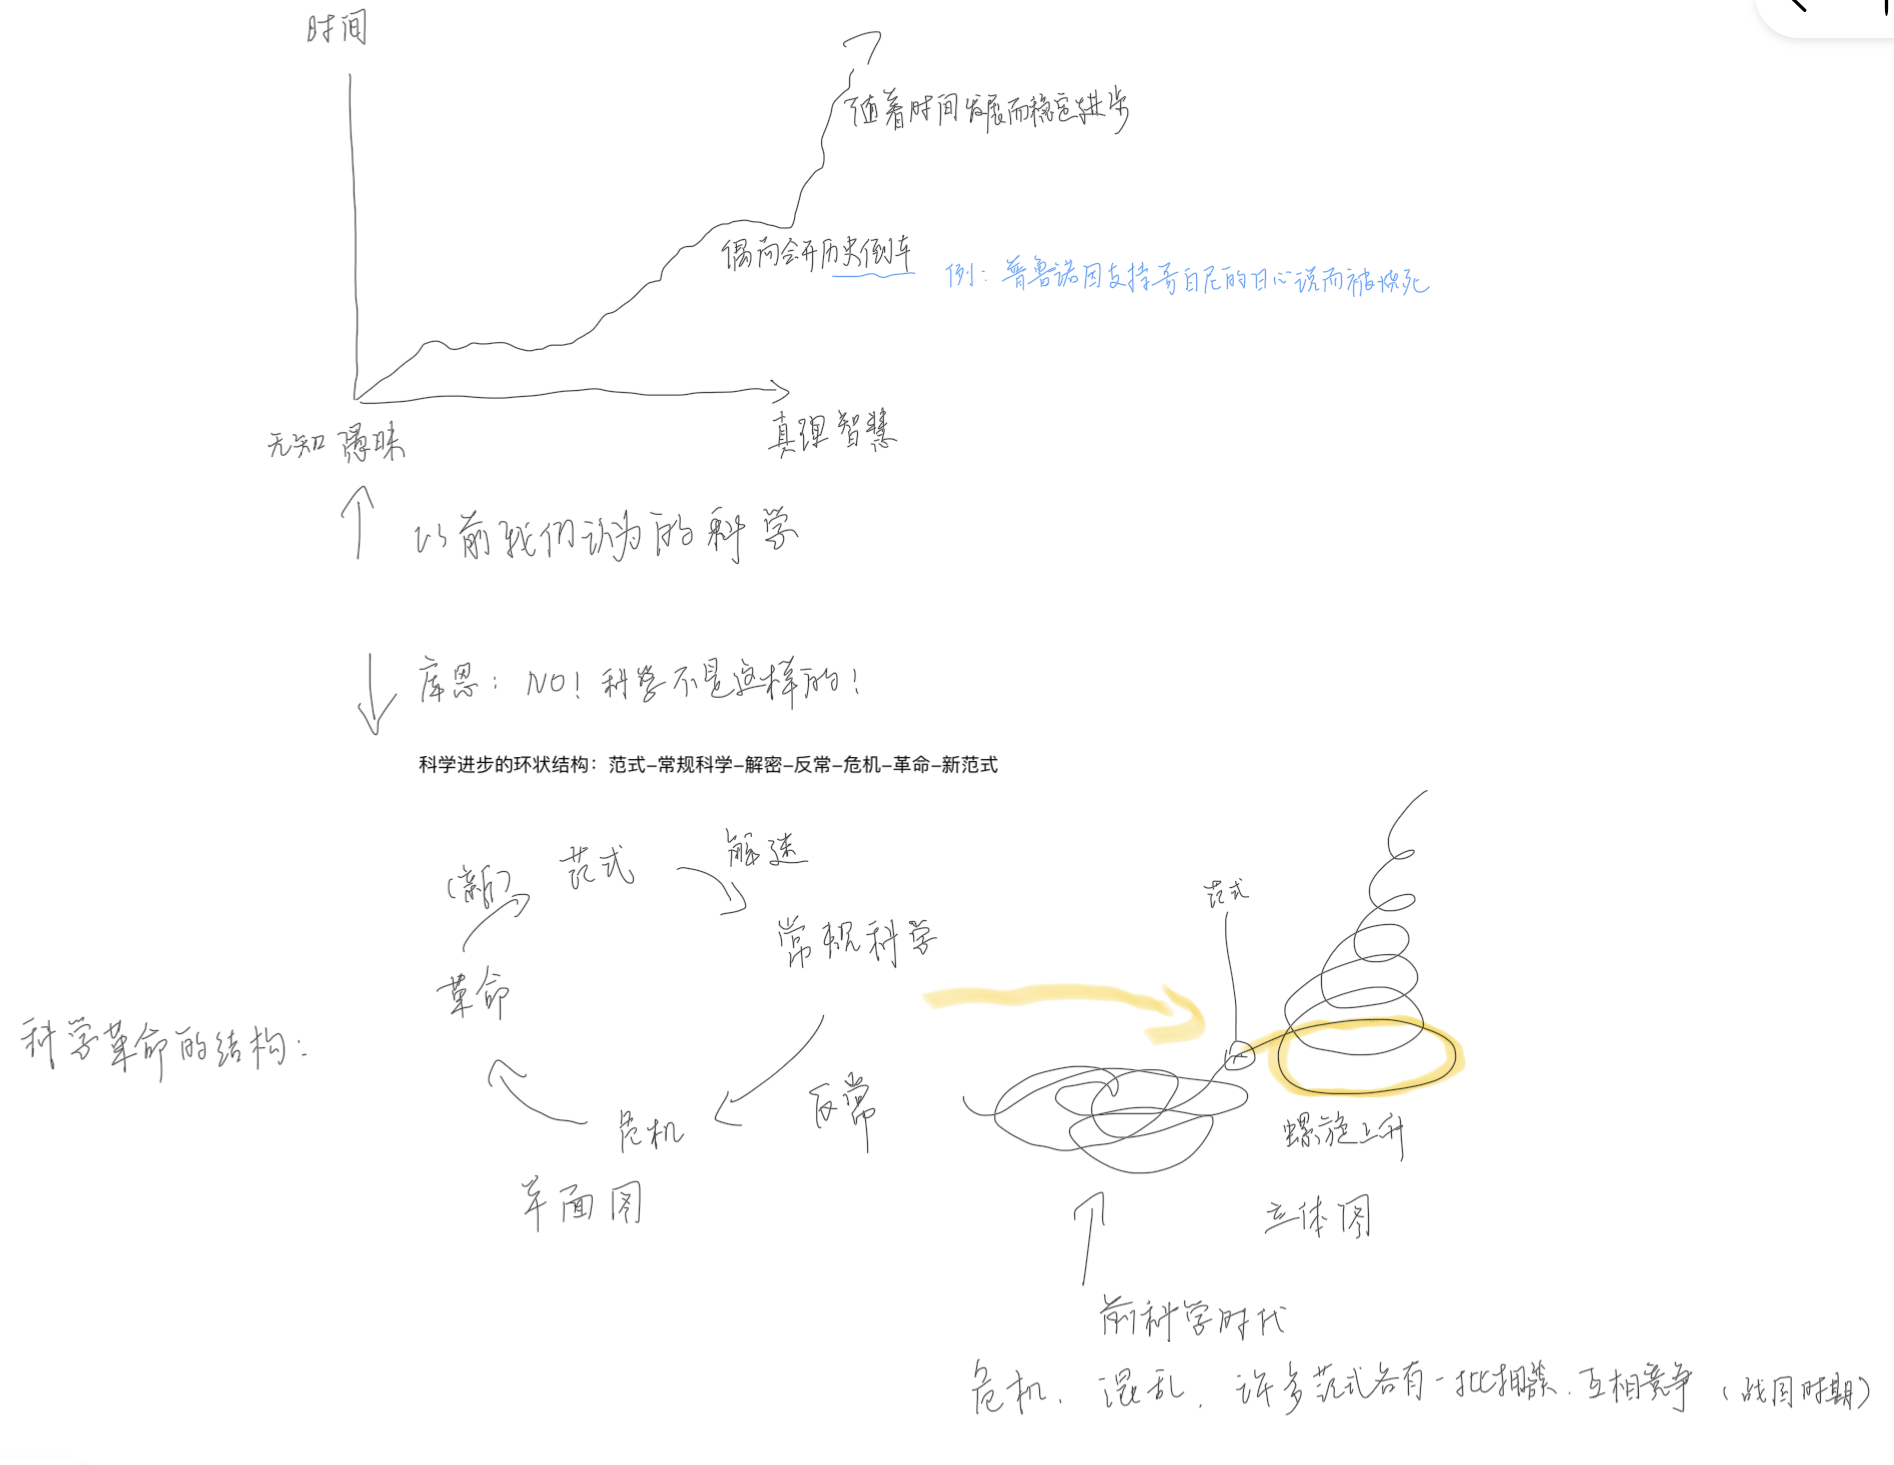 时间
随着时间发展而稳定进步
偶尔会开历史倒车
例：普鲁诺因支持哥白尼的日心说而被烧死
无知愚昧
真理智慧
以前我们认为的科学
库恩：NO！科学不是这样的！
科学进步的环状结构：范式–常规科学–解密–反常–危机–革命–新范式
（新）
范式
解迷
常规科学
革命
科学革命的结构：
反常
危机
平面图
范式
螺旋上升
立体图
前科学时代
危机、混乱、许多范式各有一批拥趸、互相竞争（战国时期）